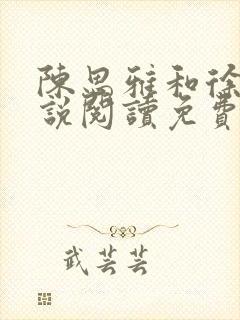 陳思雅和徐
說閱讀免費
武芸芸